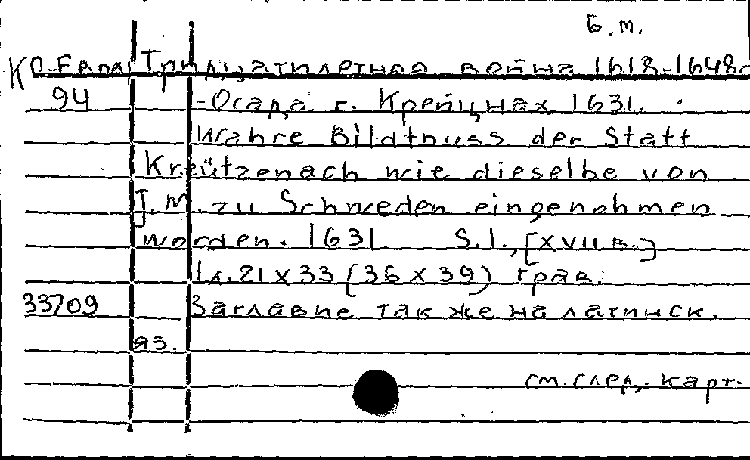 Б.м.
Тридцатилетняя война 1618-1648
94 -Осада г. Крейцнах 1631.
Wahre Bildtnuss der Statt
Kreützenach wie dieselbe von
J.M. zu Schweden eingenohmen
worden. 1631 S.l., [XVII в.]
1 л. 21 x 33 (36 x 39) грав.
33709 Заглавие также на латинск.
яз.
см. след. карт.